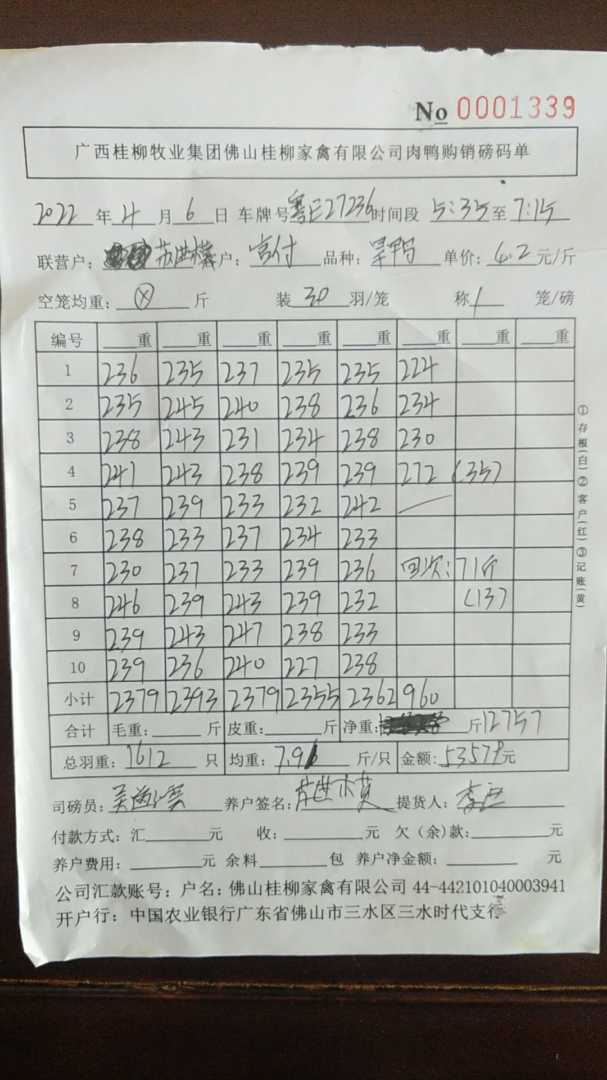 No 0001339
广西桂柳牧业集团佛山桂柳家禽有限公司肉鸭购销磅码单
2022 年 4 月 6 日 车牌号 粤E27236 时间段 5:35 至 7:15
联营户: 户: 宫付 品种: 旱鸭 单价: 4.2 元/斤
空笼均重: ⓧ 斤 装 30 羽/笼 称 1 笼/磅
编号 重 重 重 重 重 重 重 重
1 236 235 237 235 235 224
2 235 245 240 238 236 234
3 238 243 231 234 238 230
4 241 243 238 239 239 272 (35)
5 237 239 233 232 242 —
6 238 233 237 234 233
7 230 237 233 239 236 回次: 71斤
8 246 239 243 239 232 (13)
9 239 243 247 238 233
10 239 236 240 227 238
小计 2379 2393 2379 2355 2362 960
合计 毛重: 斤 皮重: 斤 净重: 斤 12757
总羽重: 1612 只 均重: 7.91 斤/只 金额: 53579 元
司磅员: 养户签名: 提货人:
付款方式: 汇 元 收: 元 欠(余)款: 元
养户费用: 元 余料 包 养户净金额: 元
公司汇款账号: 户名: 佛山桂柳家禽有限公司 44-442101040003941
开户行: 中国农业银行广东省佛山市三水区三水时代支行
①存根(白)②客户(红)③记账(黄)